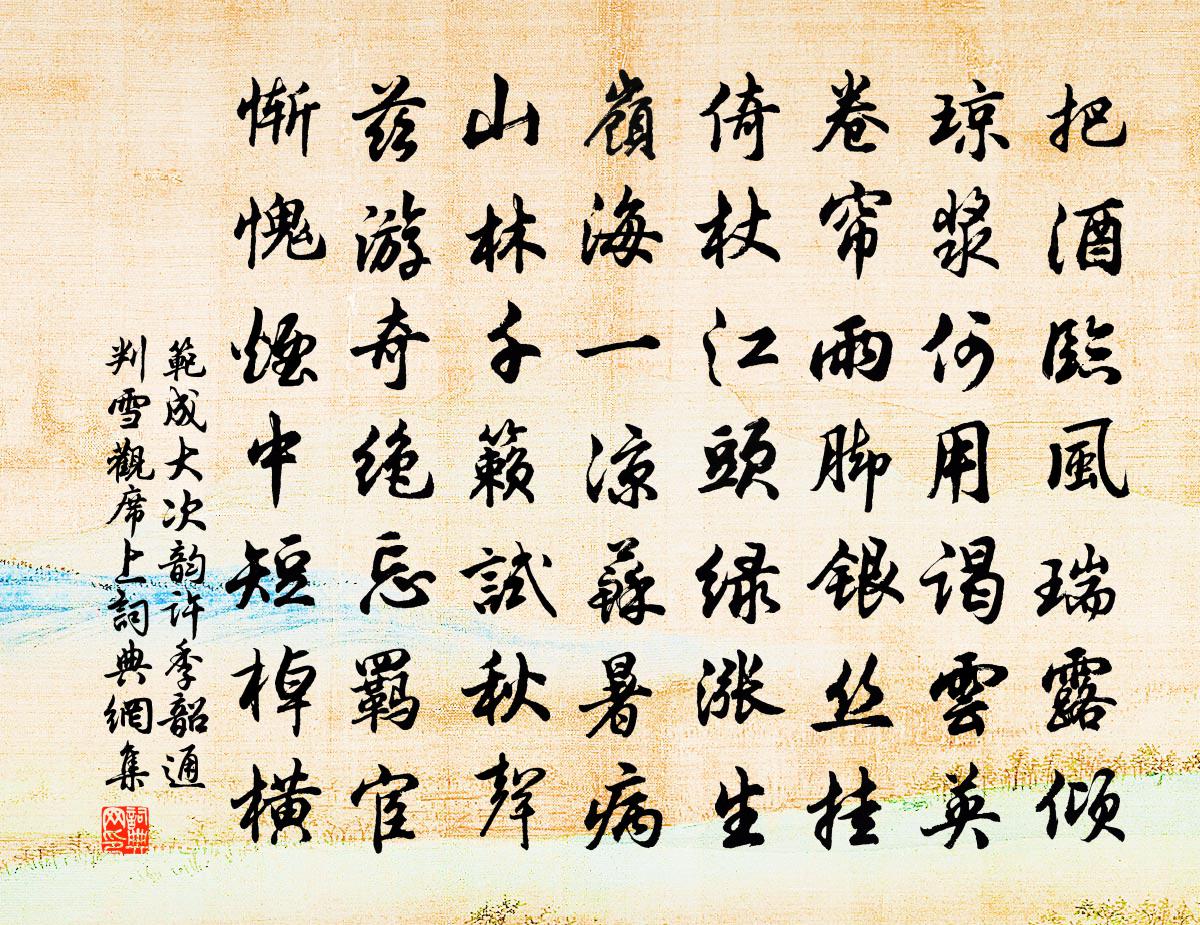 把酒臨風瑞露傾
琼漿何用谒雲英
卷帘雨脚銀丝挂
倚杖江頭緑漲生
嶺海一凉蘇暑病
山林千籁試秋聲
兹游奇绝忘羁宦
惭愧煙中短棹横
範成大次韵許季韶通
判雪觀席上詞典網集